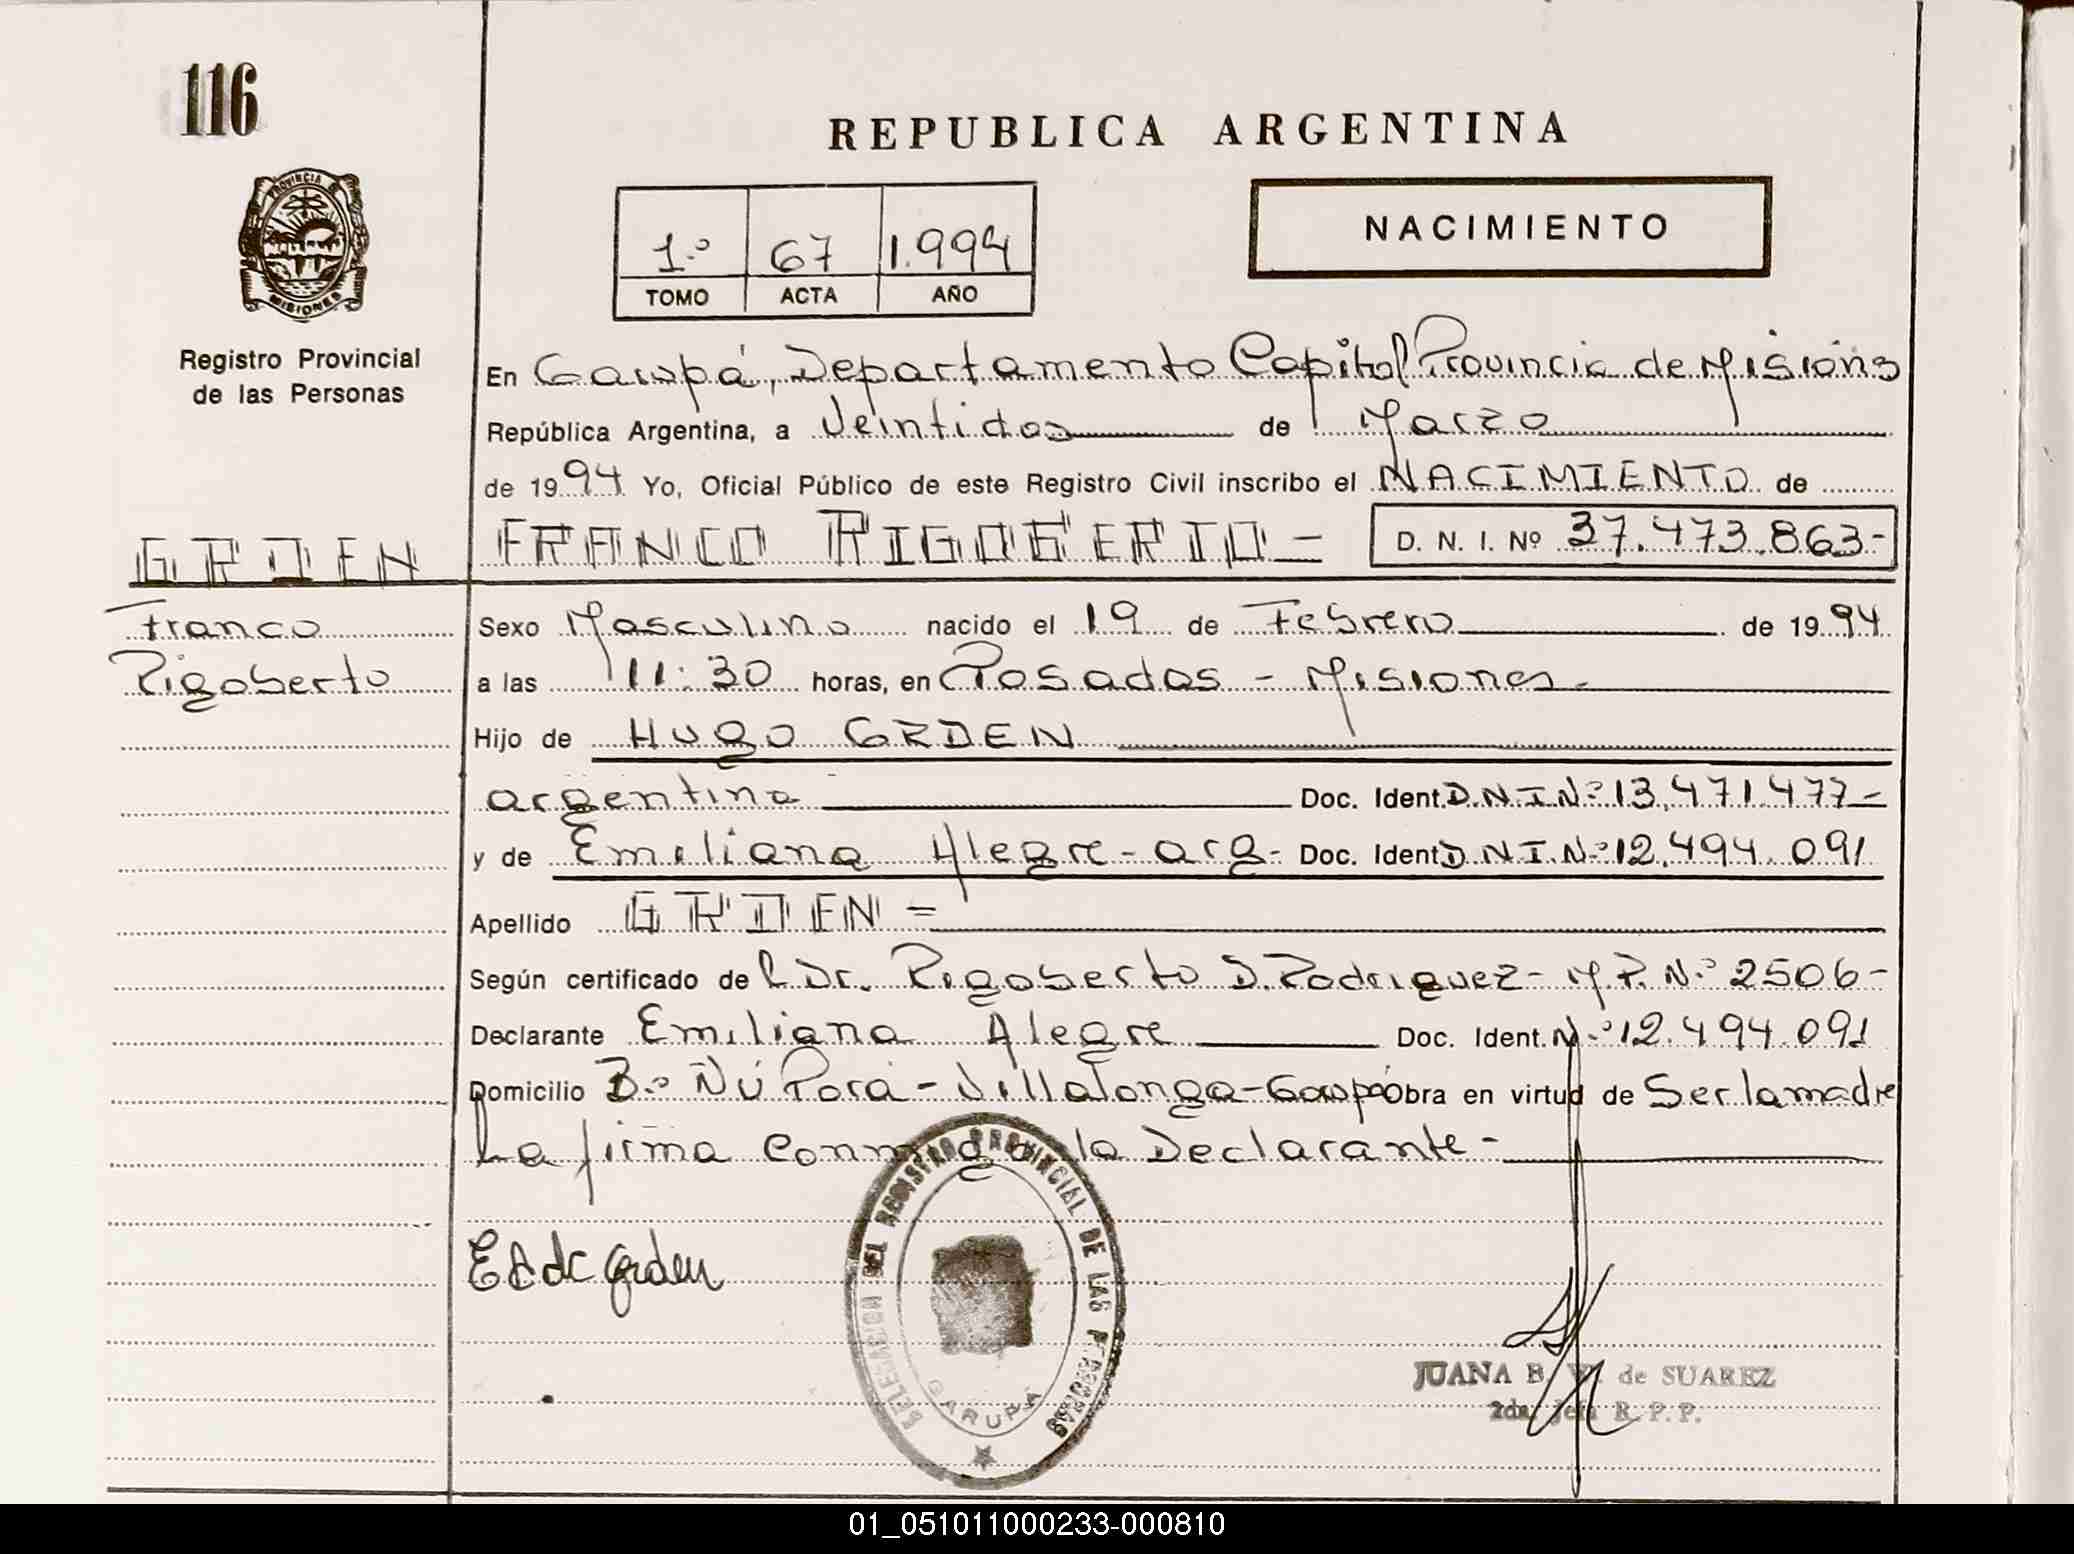 116
REPUBLICA ARGENTINA
PROVINCIA DE
MISIONES
Registro Provincial
de las Personas
1.º 67 1.994
TOMO ACTA AÑO
NACIMIENTO
En Garupá, Departamento Capital Provincia de Misiones
República Argentina, a Veintidos de Marzo
de 1994 Yo, Oficial Público de este Registro Civil inscribo el NACIMIENTO de
GRDEN
FRANCO RIGOBERTO = D. N. I. Nº 37.473.863-
Franco
Rigoberto
Sexo Masculino nacido el 19 de Febrero de 1994
a las 11:30 horas, en Posadas - Misiones.
Hijo de HUgO GRDEN
argentina Doc. Ident. D.N.I.Nº 13.471.477-
y de Emiliana Alegre - arg- Doc. Ident. D.N.I.Nº 12.494.091
Apellido GRDEN =
Según certificado del Dr. Rigoberto D. Rodriguez - M.P.Nº 2506-
Declarante Emiliana Alegre Doc. Ident. Nº 12.494.091
Domicilio Bº Ñú Porá - Villalonga - Garupá Obra en virtud de Ser la madre
La firma conmigo la Declarante-
E A de Grden
DELEGACION DEL REGISTRO PROVINCIAL DE LAS PERSONAS
GARUPA
JUANA B. de SUAREZ
2da. Jefa R. P. P.
01_051011000233-000810